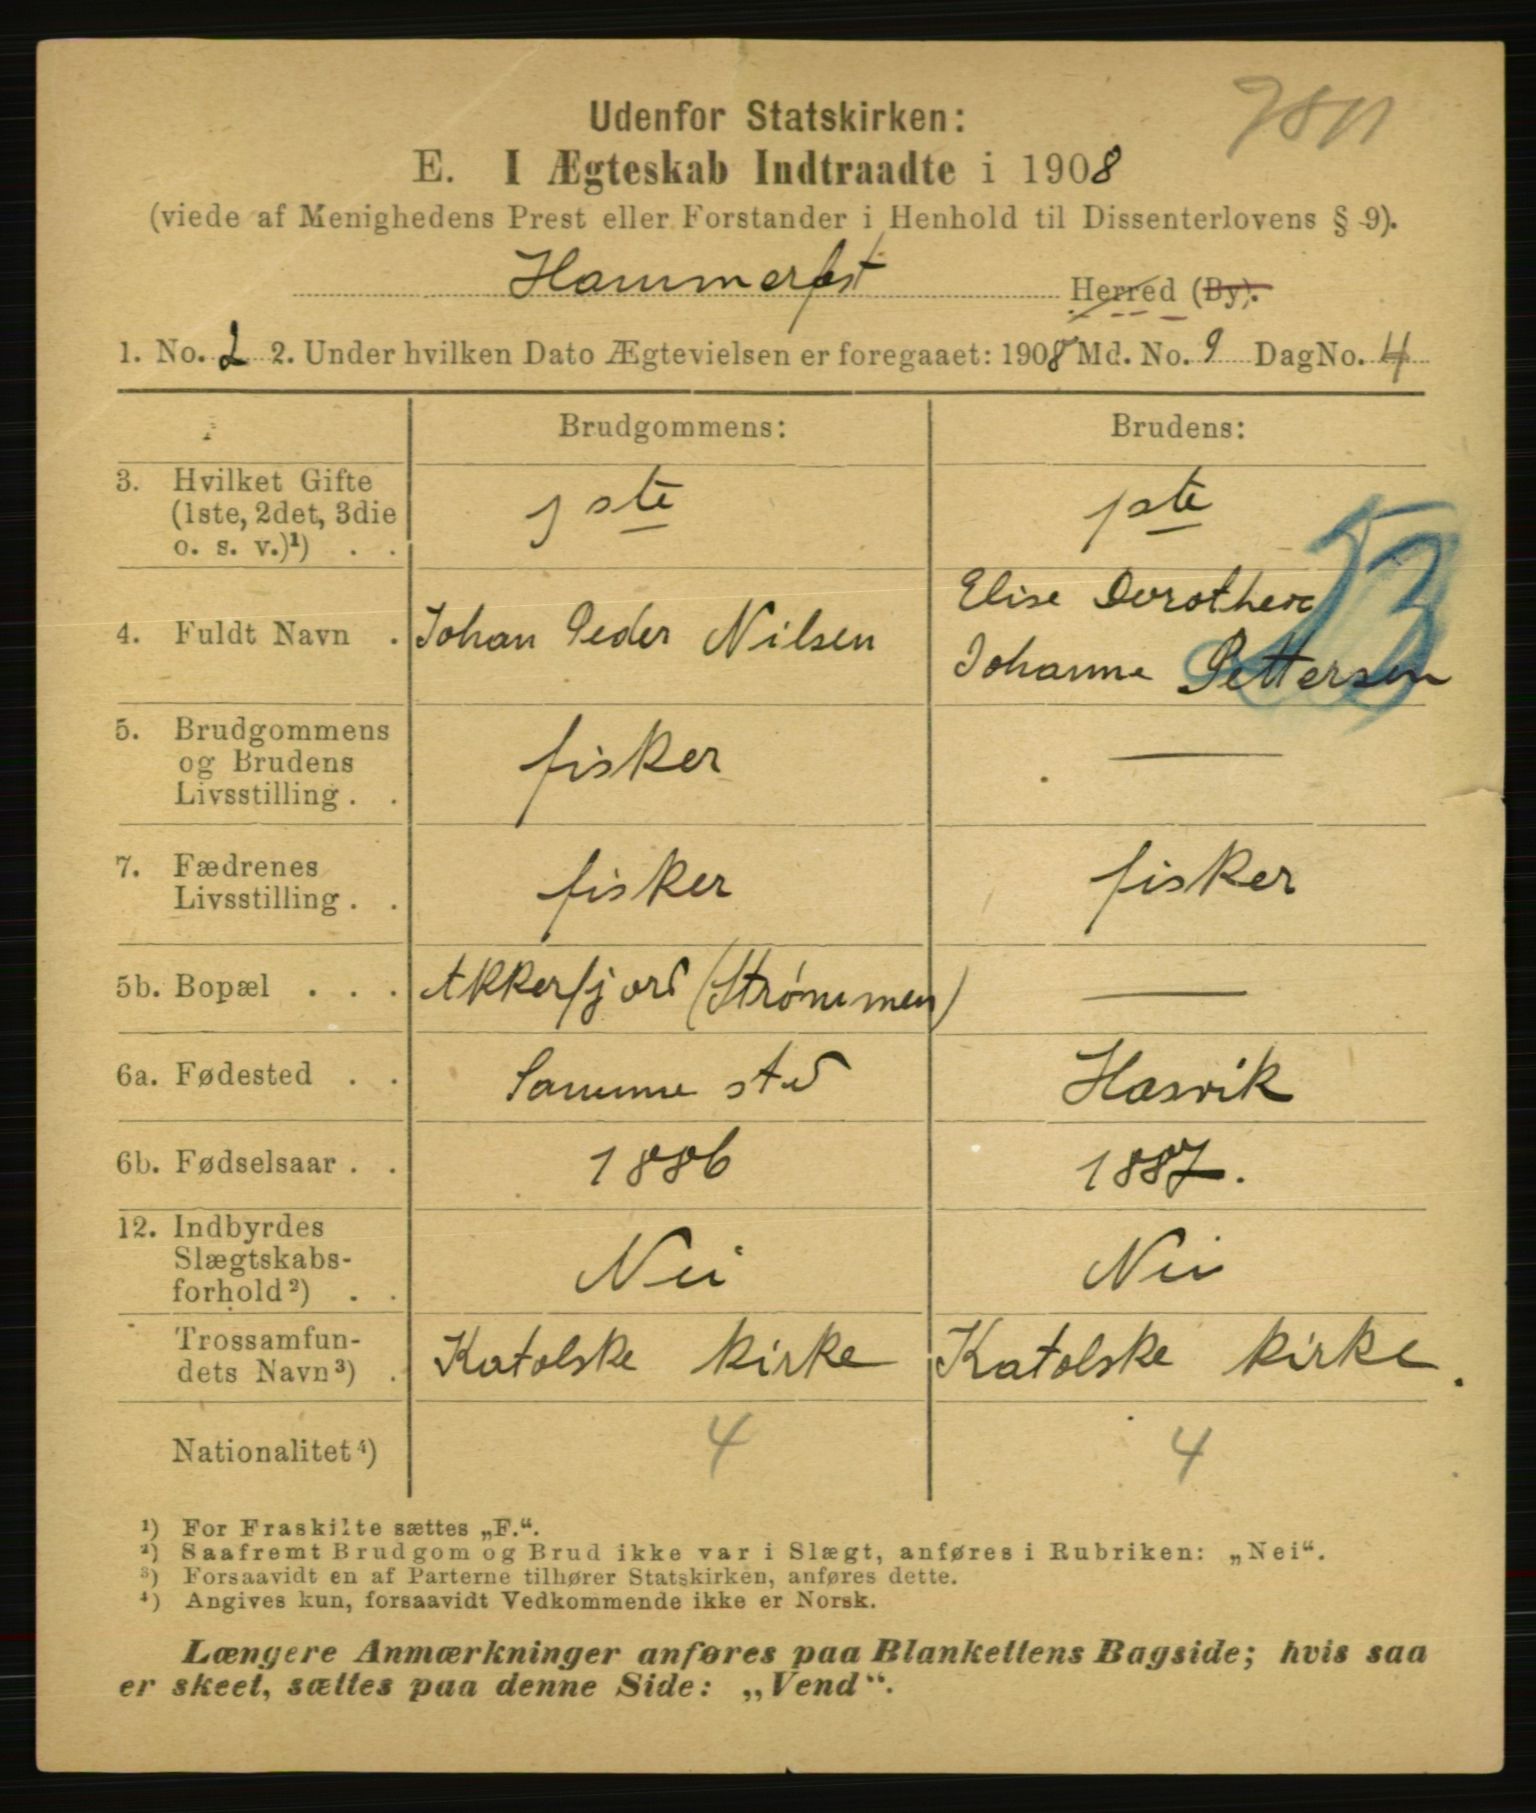 Udenfor Statskirken:
E. I Ægteskab Indtraadte i 1908
(viede af Menighedens Prest eller Forstander i Henhold til Dissenterlovens § 9).
Hammerfest Herred (By).
1. No. 2 2. Under hvilken Dato Ægtevielsen er foregaaet: 1908 Md. No. 9 Dag No. 4
Brudgommens: Brudens:
3. Hvilket Gifte
(1ste, 2det, 3die
o. s. v.)¹) . .
1ste 1ste
53
4. Fuldt Navn . Johan Peder Nilsen
Elise Dorothea
Johanne Pettersen
5. Brudgommens
og Brudens
Livsstilling . .
fisker —
7. Fædrenes
Livsstilling . .
fisker fisker
5b. Bopæl . . . Akkerfjord (Strømmen) —
6a. Fødested . . Samme sted Hasvik
6b. Fødselsaar . . 1886 1887.
12. Indbyrdes
Slægtskabs-
forhold²) . .
Nei Nei
Trossamfun-
dets Navn³) .
Katolske kirke Katolske kirke.
Nationalitet⁴) 4 4
¹) For Fraskilte sættes „F.“.
²) Saafremt Brudgom og Brud ikke var i Slægt, anføres i Rubriken: „Nei“.
³) Forsaavidt en af Parterne tilhører Statskirken, anføres dette.
⁴) Angives kun, forsaavidt Vedkommende ikke er Norsk.
Længere Anmærkninger anføres paa Blankettens Bagside; hvis saa
er skeet, sættes paa denne Side: „Vend“.